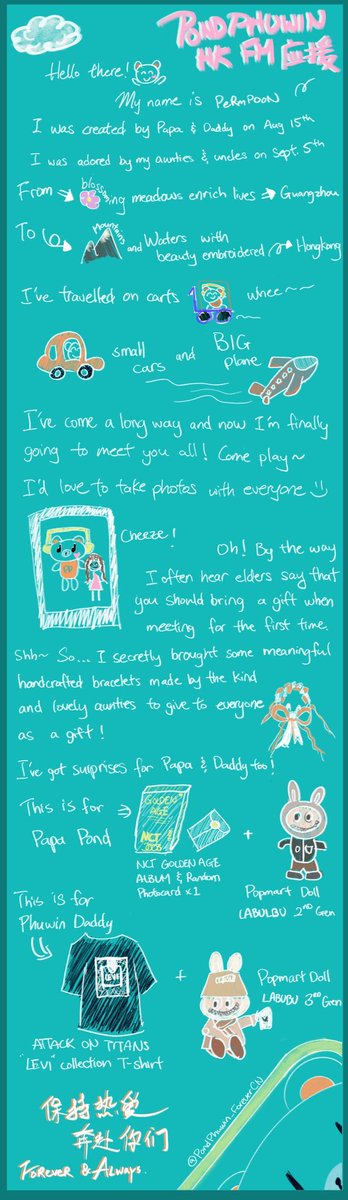 PONDPHUWIN
HK FM 应援
Hello there!
My name is PERMPOON
I was created by Papa & Daddy on Aug 15th
I was adored by my aunties & uncles on Sept. 5th
From blossoming meadows enrich lives Guangzhou
To Mountains and Waters with beauty embroidered Hongkong
I've travelled on carts whee~~
small cars and BIG plane
I've come a long way and now I'm finally
going to meet you all! Come play~
I'd love to take photos with everyone
Cheeze!
Oh! By the way
I often hear elders say that
you should bring a gift when
meeting for the first time.
Shh~ So... I secretly brought some meaningful
handcrafted bracelets made by the kind
and lovely aunties to give to everyone
as a gift!
I've got surprises for Papa & Daddy too!
This is for
Papa Pond
GOLDEN AGE
NCT
+
NCT GOLDEN AGE
ALBUM & Random
Photocard x1
Popmart Doll
LABULBU 2nd Gen
This is for
Phuwin Daddy
LEVI
+
ATTACK ON TITANS
"LEVI" collection T-shirt
Popmart Doll
LABUBU 3rd Gen
保持热爱
奔赴你们
FOREVER & ALWAYS.
@PondPhuwin_ForeverCN